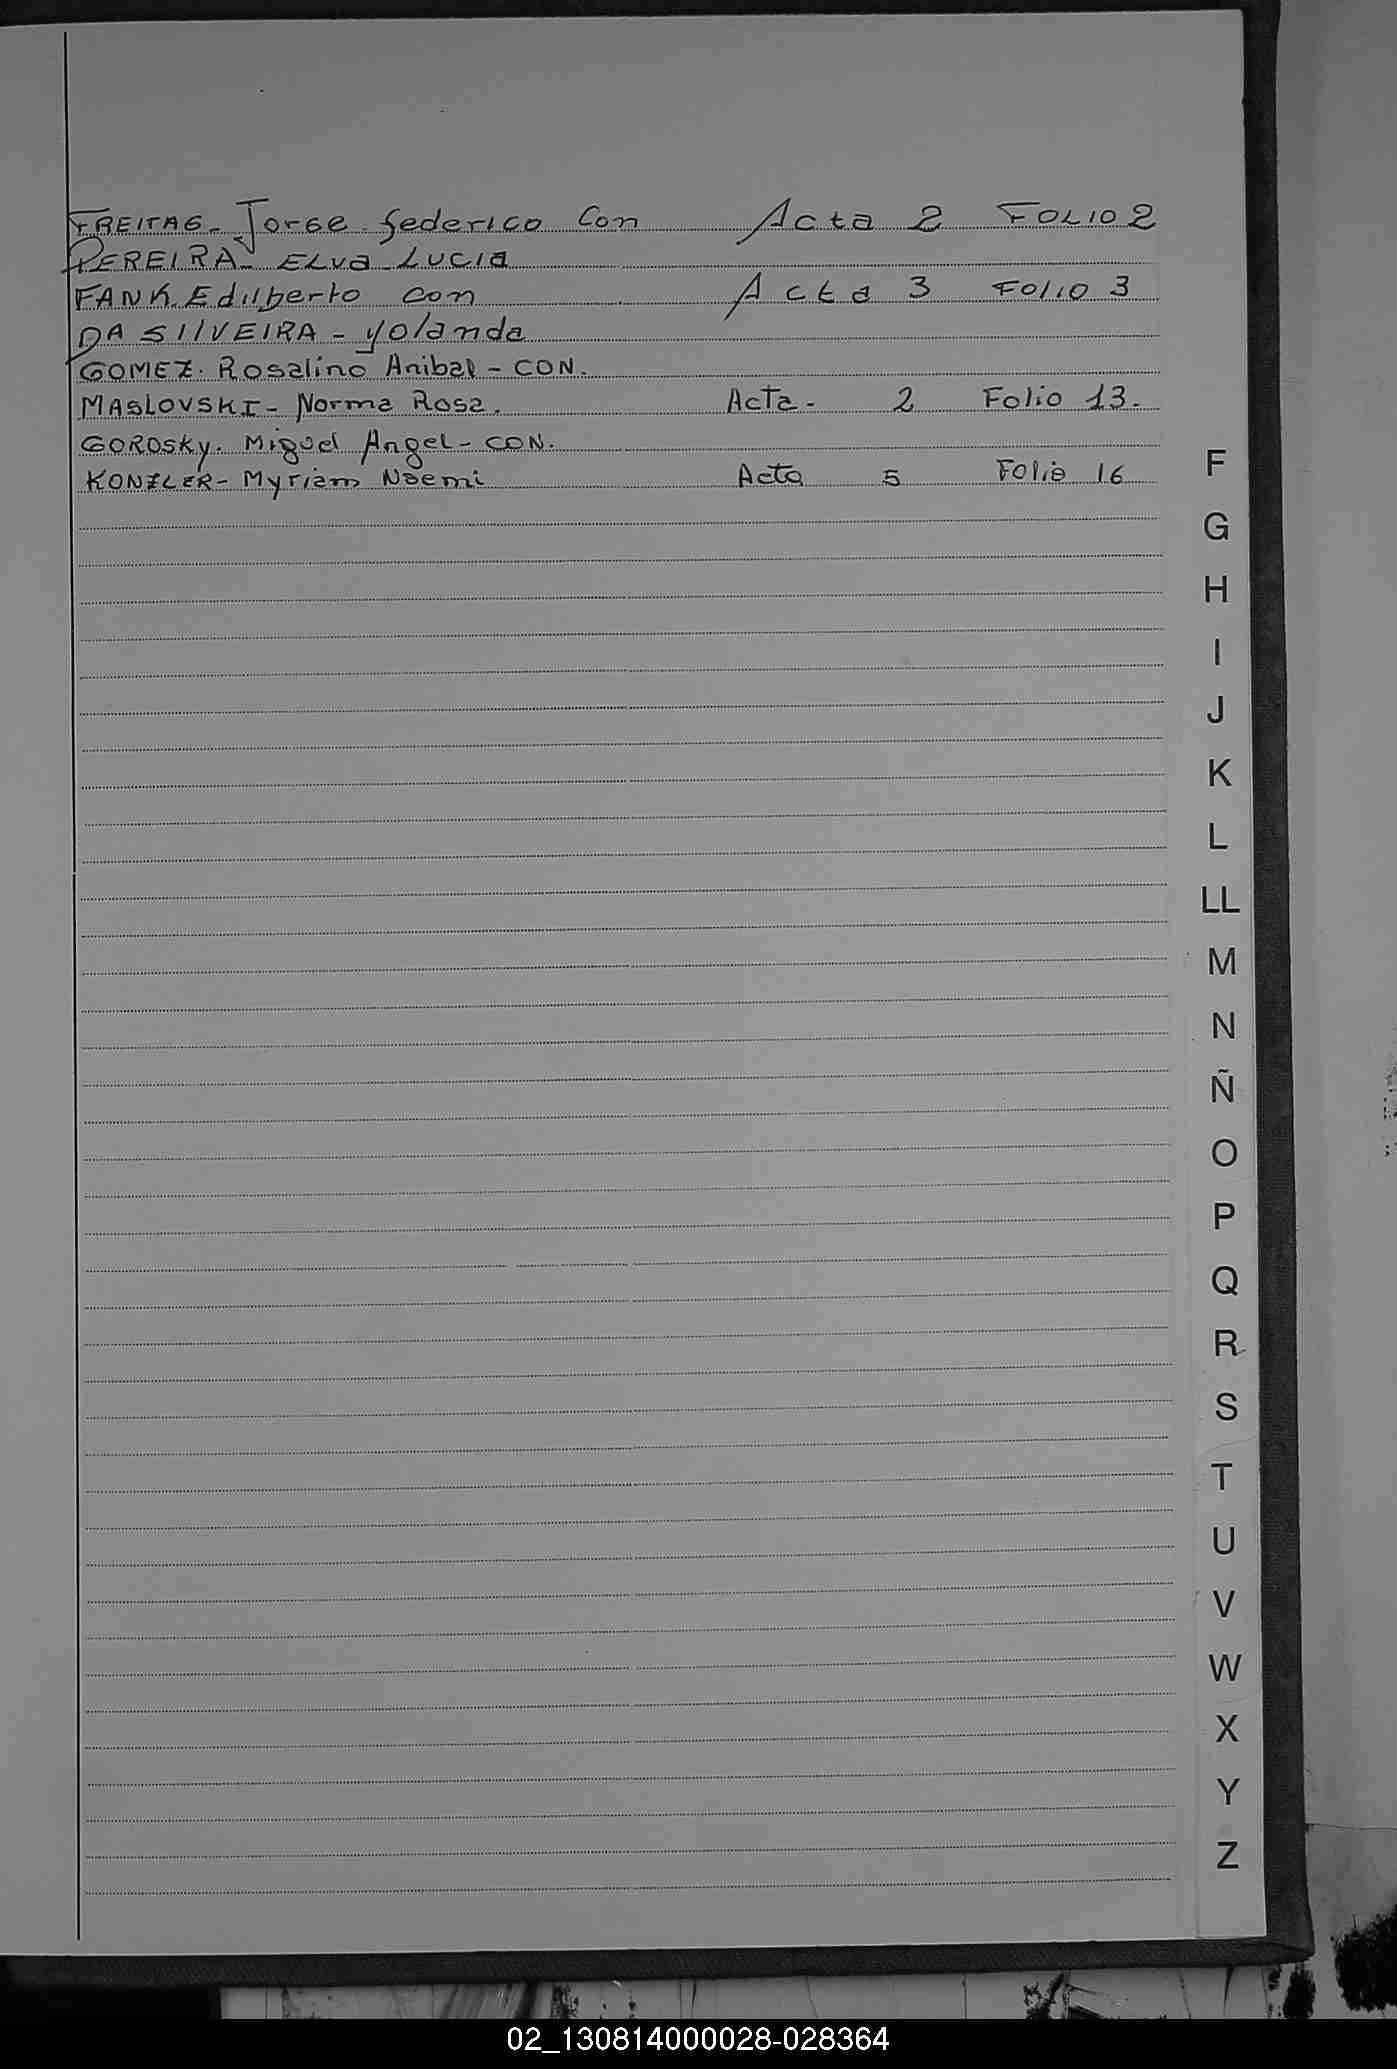 FREITAG- Jorge federico Con Acta 2 FOLIO 2
PEREIRA- ELva Lucia
FANK Edilberto con Acta 3 Folio 3
DA SILVEIRA - yolanda
GOMEZ. Rosalino Anibal - CON.
MASLOVSKI- Norma Rosa. Acta- 2 Folio 13.
GOROSKy. Miguel Angel- CON.
KONZLER- Myriam Noemi Acta 5 Folio 16
F
G
H
I
J
K
L
LL
M
N
Ñ
O
P
Q
R
S
T
U
V
W
X
Y
Z
02_130814000028-028364